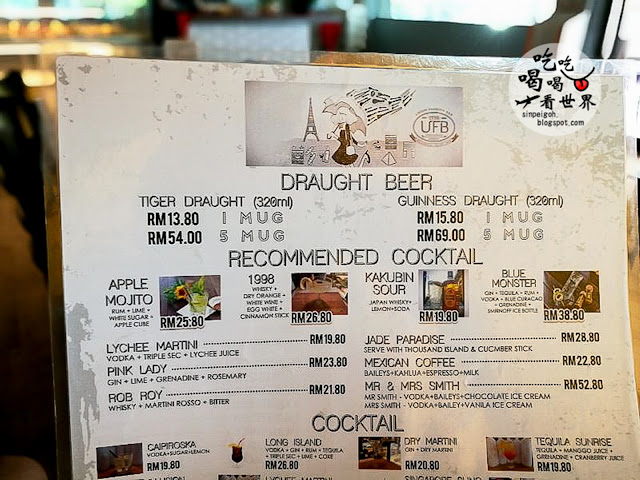 吃吃
喝喝
看世界
sinpeigoh.
blogspot.com
UFB
DRAUGHT BEER
TIGER DRAUGHT (320ml)
RM13.80 1 MUG
RM54.00 5 MUG
GUINNESS DRAUGHT (320ml)
RM15.80 1 MUG
RM69.00 5 MUG
RECOMMENDED COCKTAIL
APPLE
MOJITO
RUM + LIME +
WHITE SUGAR +
APPLE CUBE
RM25.80
1998
WHISKY +
DRY ORANGE +
WHITE WINE +
EGG WHITE +
CINNAMON STICK
RM26.80
KAKUBIN
SOUR
JAPAN WHISKY+
LEMON+SODA
RM19.80
BLUE
MONSTER
GIN + TEQUILA + RUM +
VODKA + BLUE CURACAO
+ GRENADINE +
SMIRNOFF ICE BOTTLE
RM38.80
LYCHEE MARTINI RM19.80
VODKA + TRIPLE SEC + LYCHEE JUICE
PINK LADY RM23.80
GIN + LIME + GRENADINE + ROSEMARY
ROB ROY RM21.80
WHISKY + MARTINI ROSSO + BITTER
JADE PARADISE RM28.80
SERVE WITH THOUSAND ISLAND & CUCMBER STICK
MEXICAN COFFEE RM22,80
BAILEYS+KAHLUA+ESPRESSO+MILK
MR & MRS SMITH RM52.80
MR SMITH - VODKA+BAILEYS+CHOCOLATE ICE CREAM
MRS SMITH - VODKA+BAILEY+VANILA ICE CREAM
COCKTAIL
CAIPIROSKA
VODKA+SUGAR+LEMON
RM19.80
LONG ISLAND
VODKA + GIN + RUM + TEQUILA
+ TRIPLE SEC + LIME + COKE
RM26.80
DRY MARTINI
GIN + DRY MARTINI
RM20.80
TEQUILA SUNRISE
TEQUILA + MANGGO JUICE +
GRENADINE + CRANBERRY JUICE
RM19.80